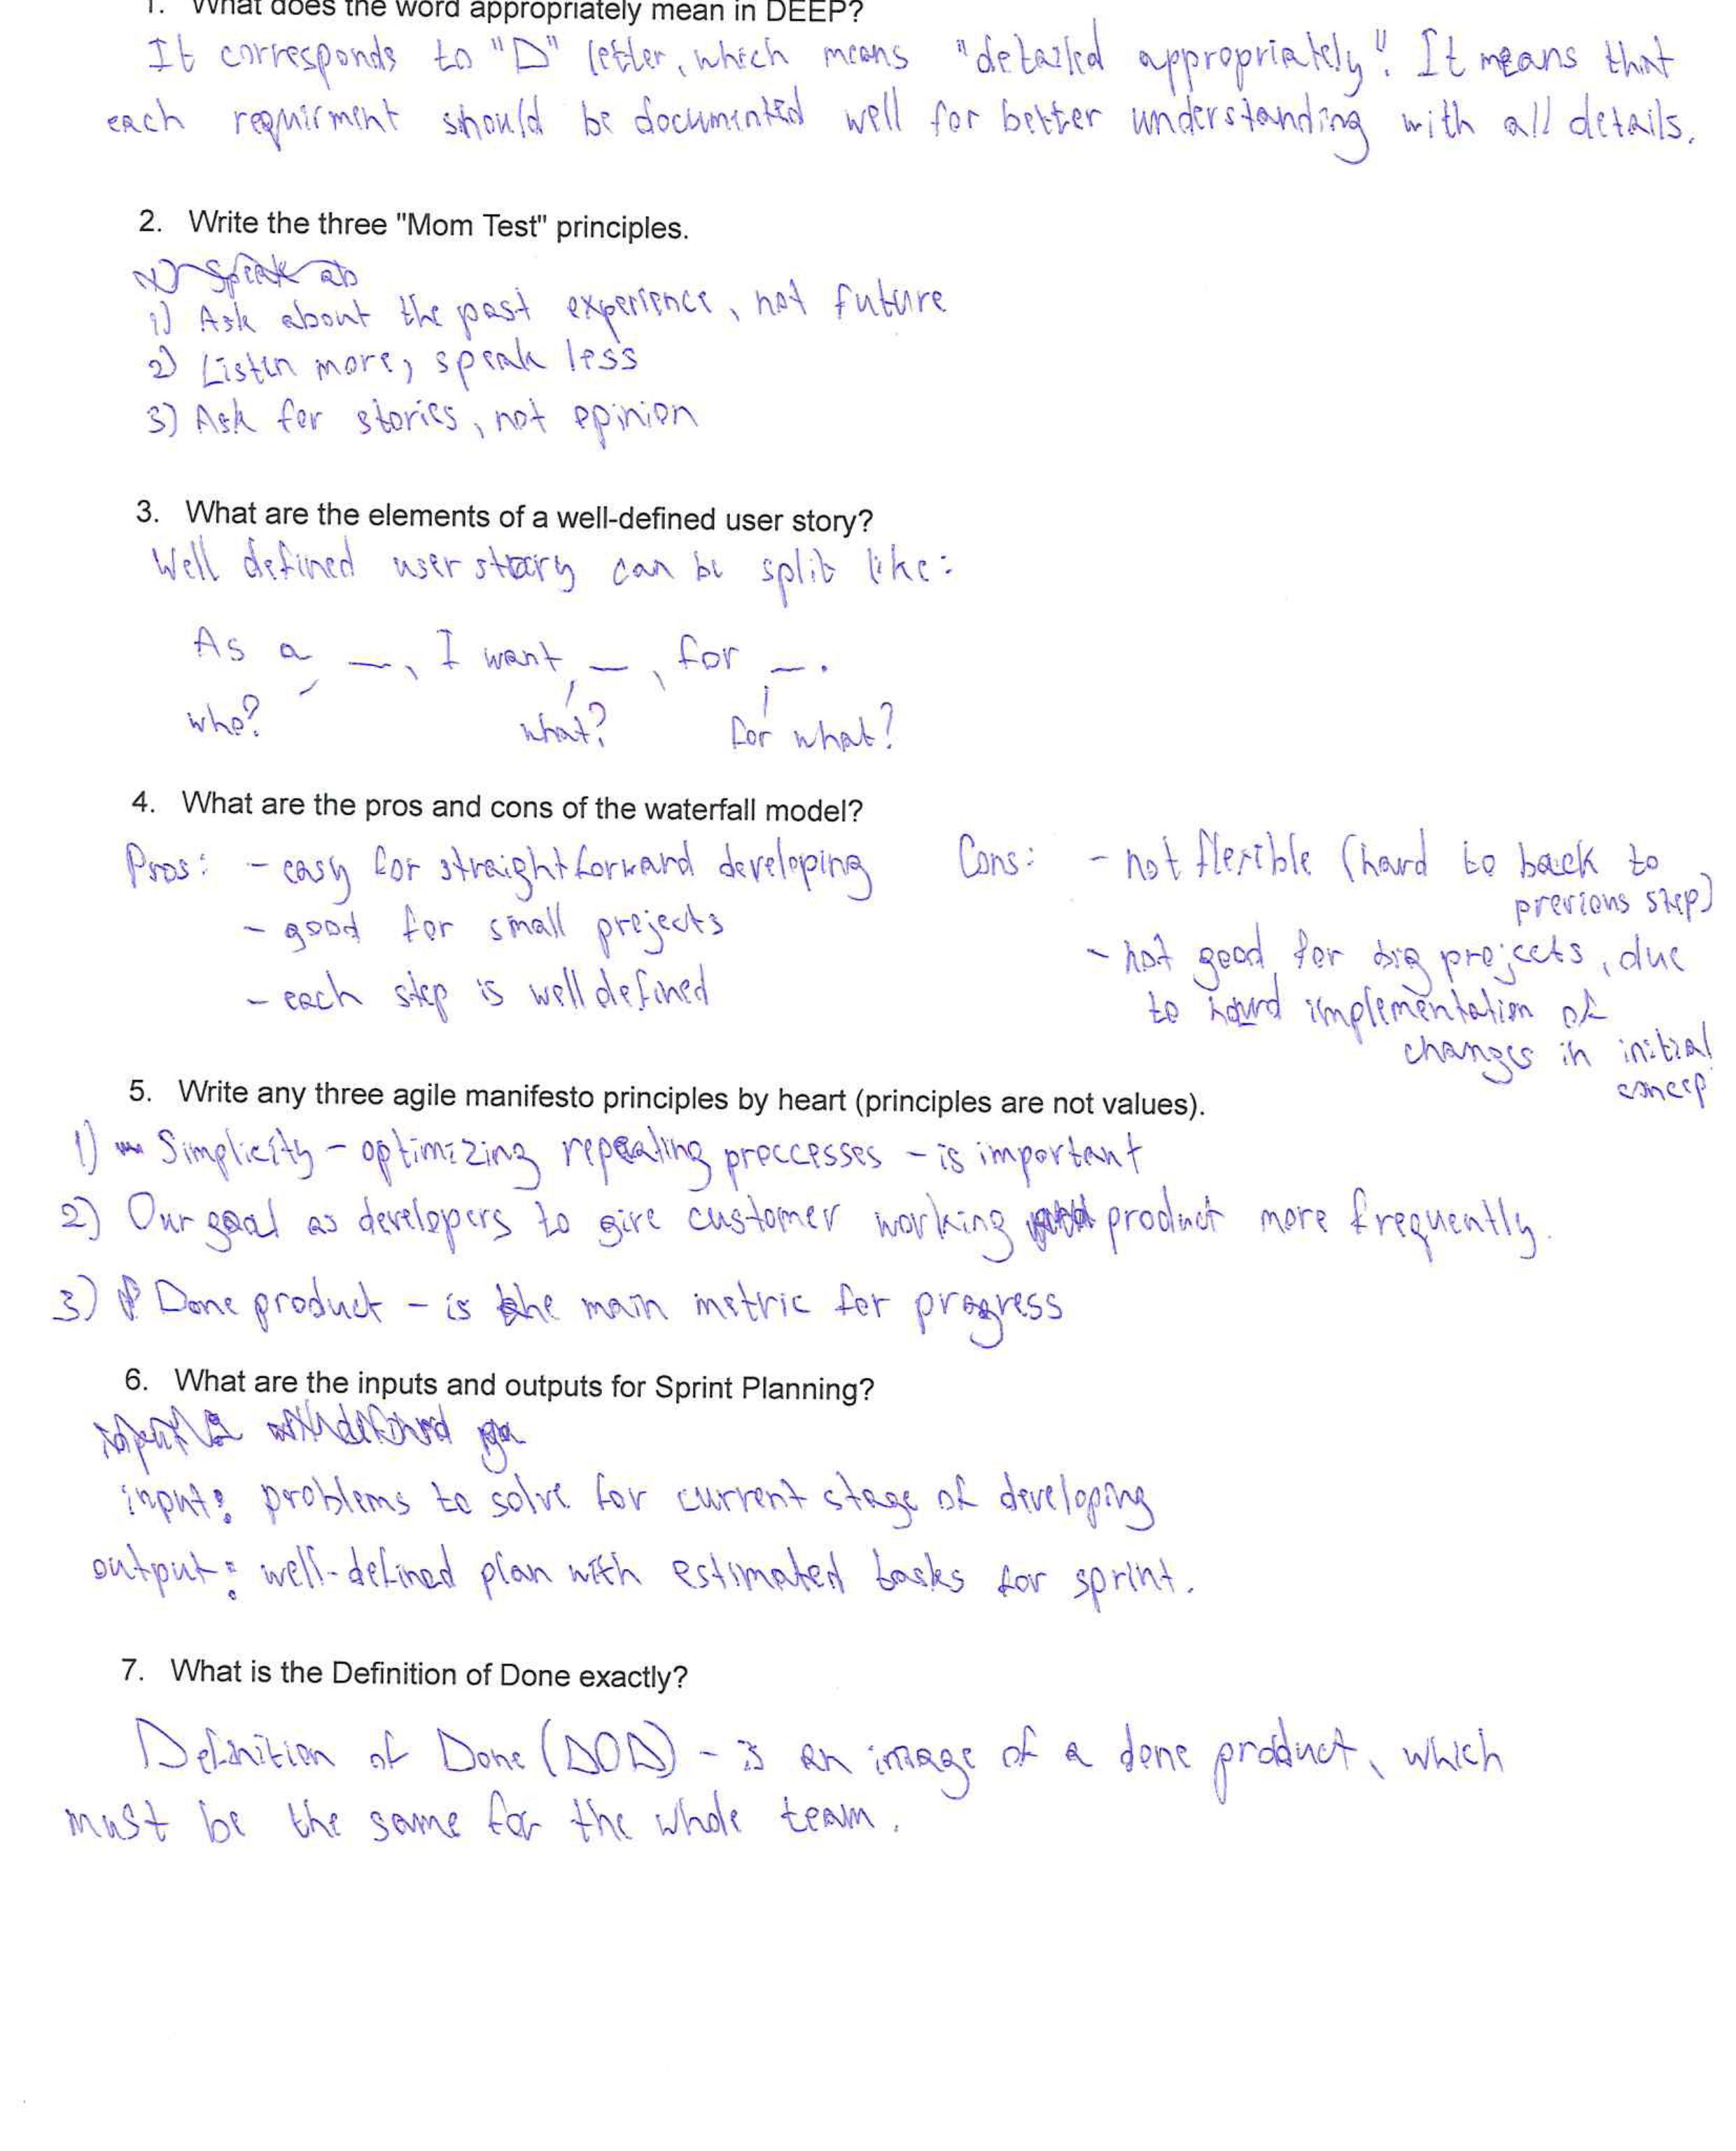 1. What does the word appropriately mean in DEEP?
It corresponds to "D" letter, which means "detailed appropriately". It means that
each requirment should be documented well for better understanding with all details.
2. Write the three "Mom Test" principles.
Speak ab
1) Ask about the past experience, not future
2) Listen more, speak less
3) Ask for stories, not opinion
3. What are the elements of a well-defined user story?
Well defined user story can be split like:
As a __, I want __, for __.
who? what? for what?
4. What are the pros and cons of the waterfall model?
Pros: - easy for straightforward developing Cons: - not flexible (hard to back to
previous step)
- good for small projects
- not good for big projects, due
- each step is well defined
to hard implementation of
changes in initial
concep
5. Write any three agile manifesto principles by heart (principles are not values).
1) Simplicity - optimizing repeating proccesses - is important
2) Our goal as developers to give customer working product more frequently.
3) Done product - is the main metric for progress
6. What are the inputs and outputs for Sprint Planning?
input: problems to solve for current stage of developing
output: well-defined plan with estimated tasks for sprint.
7. What is the Definition of Done exactly?
Definition of Done (DOD) - is an image of a done product, which
must be the same for the whole team.